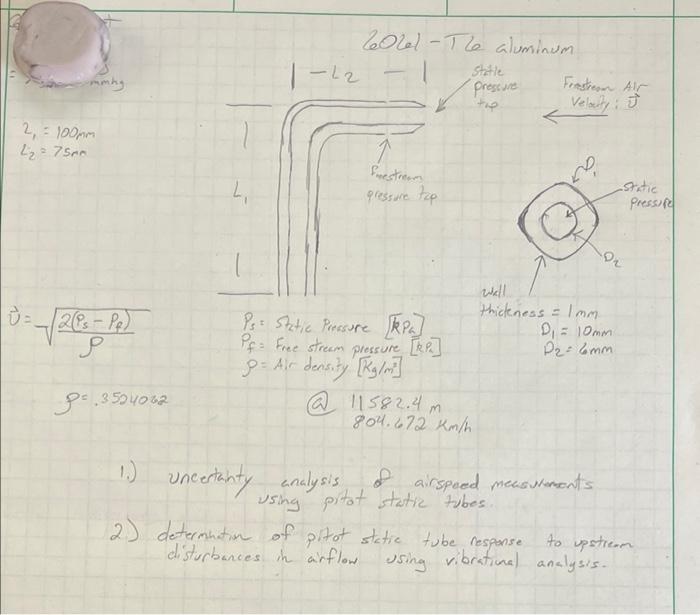 6061-T6 aluminum
|-L2-|
Static
pressure
tap
Freestream Air
Velocity: U
mmhg
L1 = 100mm
L2 = 75mm
L1
Freestream
pressure tap
D1
Static
Pressure
D2
wall
thickness = 1mm
D1 = 10mm
D2 = 6mm
U = √(2(Ps - Pf)/ρ)
Ps = Static Pressure [kPa]
Pf = Free stream pressure [kPa]
ρ = Air density [Kg/m³]
ρ = .3524062
@ 11582.4 m
804.672 Km/h
1.) uncertainty analysis of airspeed measurements
using pitot static tubes.
2.) determination of pitot static tube response to upstream
disturbances in airflow using vibrational analysis.